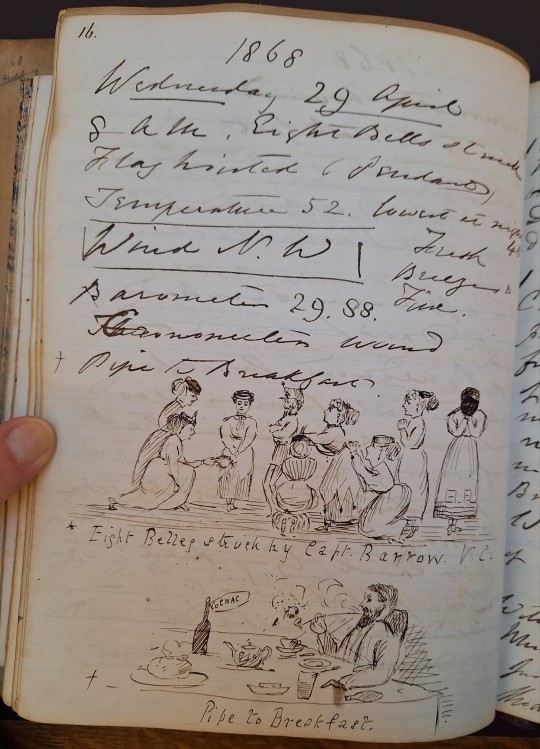 16.
1868
Wednesday 29 April
8 A M. Eight Bells struck
Flag hoisted (Pendants)
Temperature 52. lowest at night
Wind N. W
Fresh
Breezes &
Fine.
Barometer 29. 88.
Chronometers wound
† Pipe to Breakfast.
* Eight Belles struck by Capt. Barrow. V.C.
COGNAC
† -
Pipe to Breakfast.